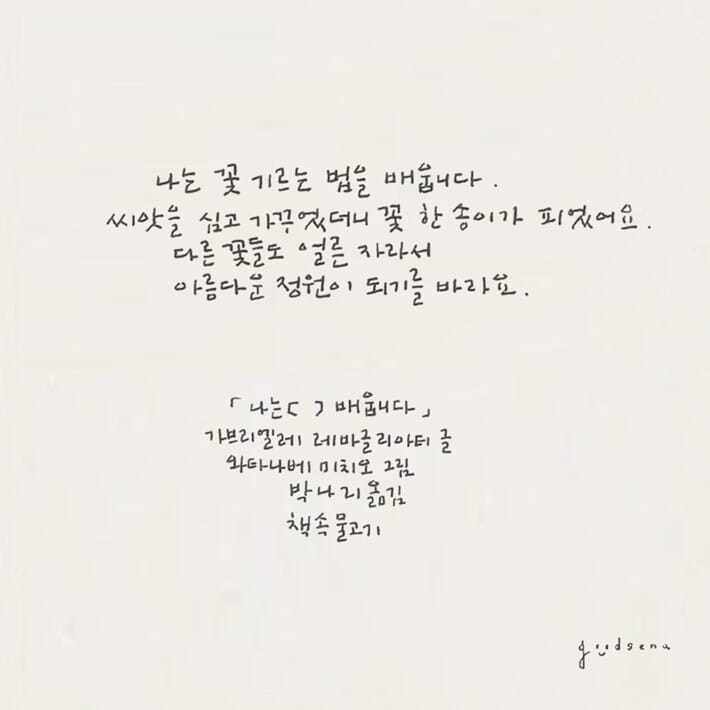 나는 꽃 기르는 법을 배웁니다.
씨앗을 심고 가꾸었더니 꽃 한 송이가 피었어요.
다른 꽃들도 얼른 자라서
아름다운 정원이 되기를 바라요.
「나는 [ ] 배웁니다」
가브리엘레 레바글리아티 글
와타나베 미치오 그림
박나리 옮김
책속물고기
goodsena